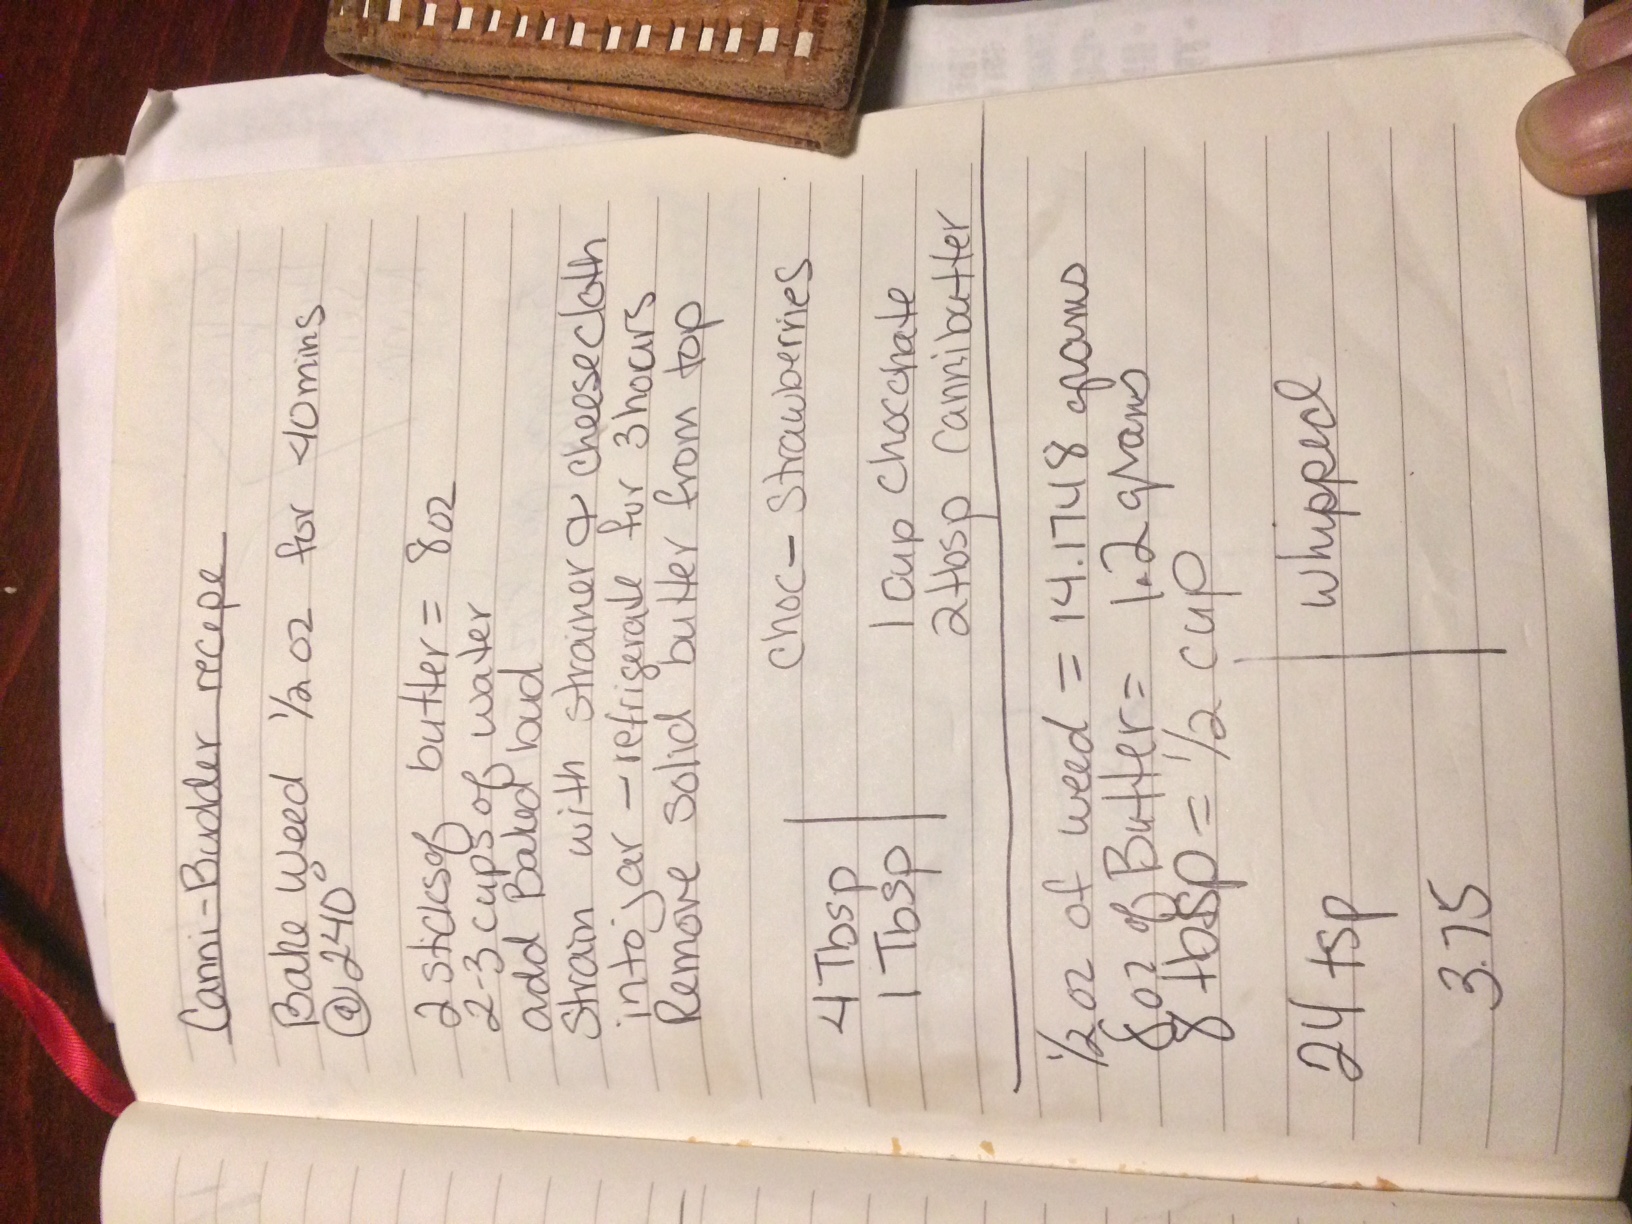 Canni-Budder recepe
Bake Weed 1/2 oz for 40mins
@240°
2 sticks of butter = 8oz
2-3 cups of water
add Baked bud
Strain with strainer & cheesecloth
into jar - refrigerate for 3 hours
Remove solid butter from top
choc- Strawberries
4 Tbsp
1 Tbsp
1 cup chocchate
2 tbsp Cannibutter
1/2 oz of weed = 14.1748 grams
8 oz of Butter = 1.2 grams
8 tbsp = 1/2 cup
24 tsp
whipped
3.75